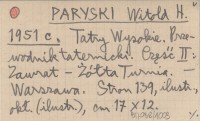 PARYSKI Witold H.
1951 c, Tatry Wysokie. Prze-
wodnik taternicki. Część II:
Zawrat - Żółta Turnia. —
Warszawa. Stron 139, ilustr.,
okł. (ilustr.), cm 17 × 12.